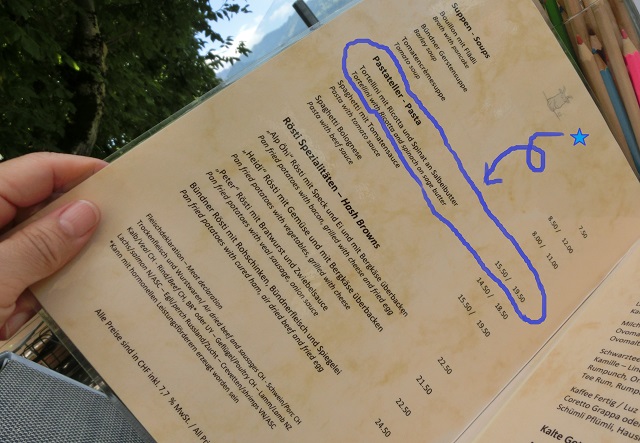 Suppen - Soups
Bouillon mit Flädli
Broth with pancake
Bündner Gerstensuppe
Barley soup
Tomatencremesuppe
Tomato soup
7.50
8.50 / 12.00
8.00 / 11.00
Pastateller - Pasta
Tortellini mit Ricotta und Spinat an Salbeibutter
Tortellini with Ricotta and spinach on sage butter
15.50 / 19.50
Spaghetti mit Tomatensauce
Pasta with tomato sauce
14.50 / 18.50
Spaghetti Bolognese
Pasta with beef sauce
15.50 / 19.50
Rösti Spezialitäten – Hash Browns
„Alp Öhi“ Rösti mit Speck und Ei und mit Bergkäse überbacken
Pan fried potatoes with bacon, grilled with cheese and fried egg
22.50
„Heidi“ Rösti mit Gemüse und mit Bergkäse überbacken
Pan fried potatoes with vegetables, grilled with cheese
21.50
„Peter“ Rösti mit Bratwurst und Zwiebelsauce
Pan fried potatoes with veal sausage, onion sauce
22.50
Bündner Rösti mit Rohschinken, Bündnerfleisch und Spiegelei
Pan fried potatoes with cured ham, air dried beef and fried egg
24.50
Fleischdeklaration – Meat declaration
Trockenfleisch und Wurstwaren/ Air dried beef and sausages CH
Schwein/Pork CH
Kalb/Veal CH
Lachs/salmon N/ASC
*Kann mit hormonellen Leistungsförderern erzeugt worden sein
Alle Preise sind in CHF inkl. 7,7 % MwSt. / All
Milch
Ovomalt
Ovomalt
Schwarztee
Kamille – Lin
Rumpunch, Or
Tee Rum, Rump
Kaffee Fertig / Luz
Coretto Grappa ode
Schümli Pflümli, Haus
Kalte Ge